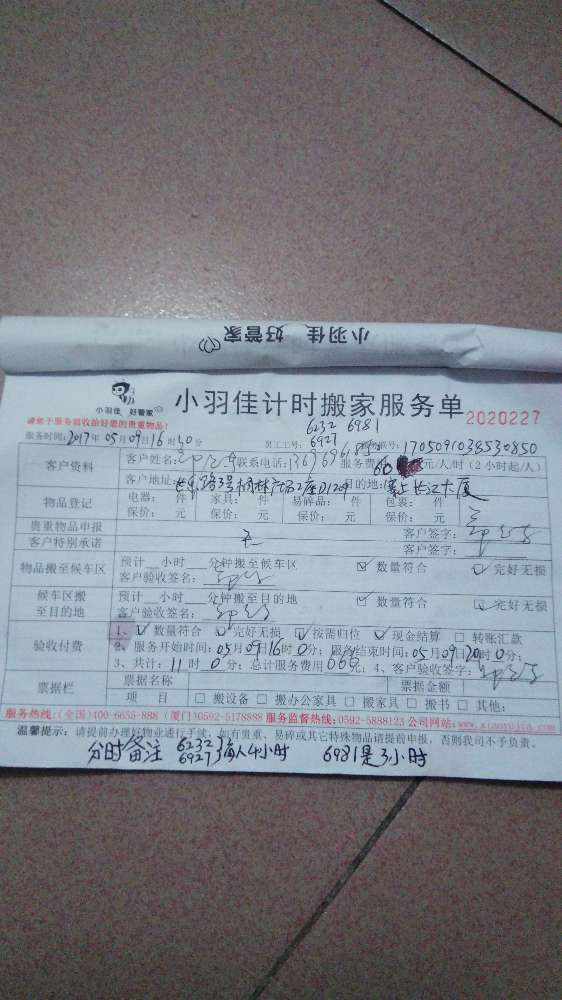 小羽佳 好管家
小羽佳 好管家
小羽佳计时搬家服务单
2020227
请您于服务前收拾好您的贵重物品!
6232 6981
服务时间:2017年05月09日16时30分
员工工号: 6927
1705091038530850
客户资料
客户姓名:
联系电话:
服务费 60 元/人/时(2小时起/人)
客户地址:
目的地:
长江大厦
物品登记
电器: 件 家具: 件 易碎品: 件 包裹: 件
保价: 元 保价: 元 保价: 元 保价: 元
贵重物品申报
无
客户签字:
客户特别承诺
客户签字:
物品搬至候车区
预计 小时 分钟搬至候车区
数量符合
完好无损
客户验收签名:
候车区搬
至目的地
预计 小时 分钟搬至目的地
数量符合
完好无损
客户验收签名:
验收付费
1、 数量符合 完好无损 按需归位 现金结算 转账汇款
2、服务开始时间:05月09日16时0分;服务结束时间:05月09日20时0分;
3、共计:11时0分;总计服务费用660元;4、客户验收签字:
票据栏
票据名称
票据金额
项 目 搬设备 搬办公家具 搬家具 搬书 其他:
服务热线:(全国)400-6655-888 (厦门)0592-5178888 服务监督热线:0592-5888123 公司网站:www.xiaoyujia.com
温馨提示:请提前办理好物业进行手续,如有贵重、易碎或其它特殊物品请提前申报,否则我司不予负责。
分时备注 6232 6927 每人4小时 6981是3小时